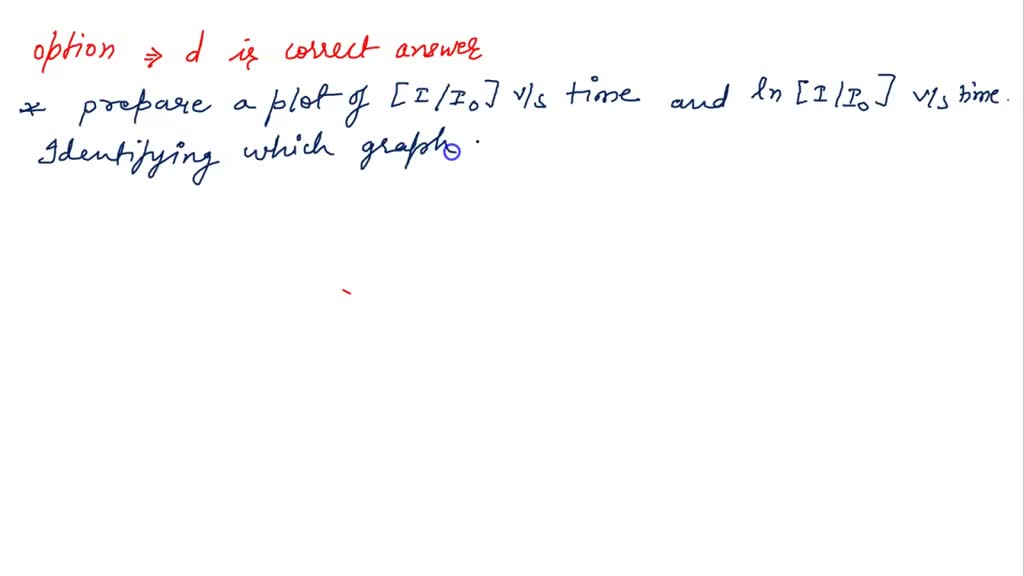 option ⇒ d is correct answer
* prepare a plot of [I/I₀] v/s time and ln [I/I₀] v/s time.
Identifying which graph